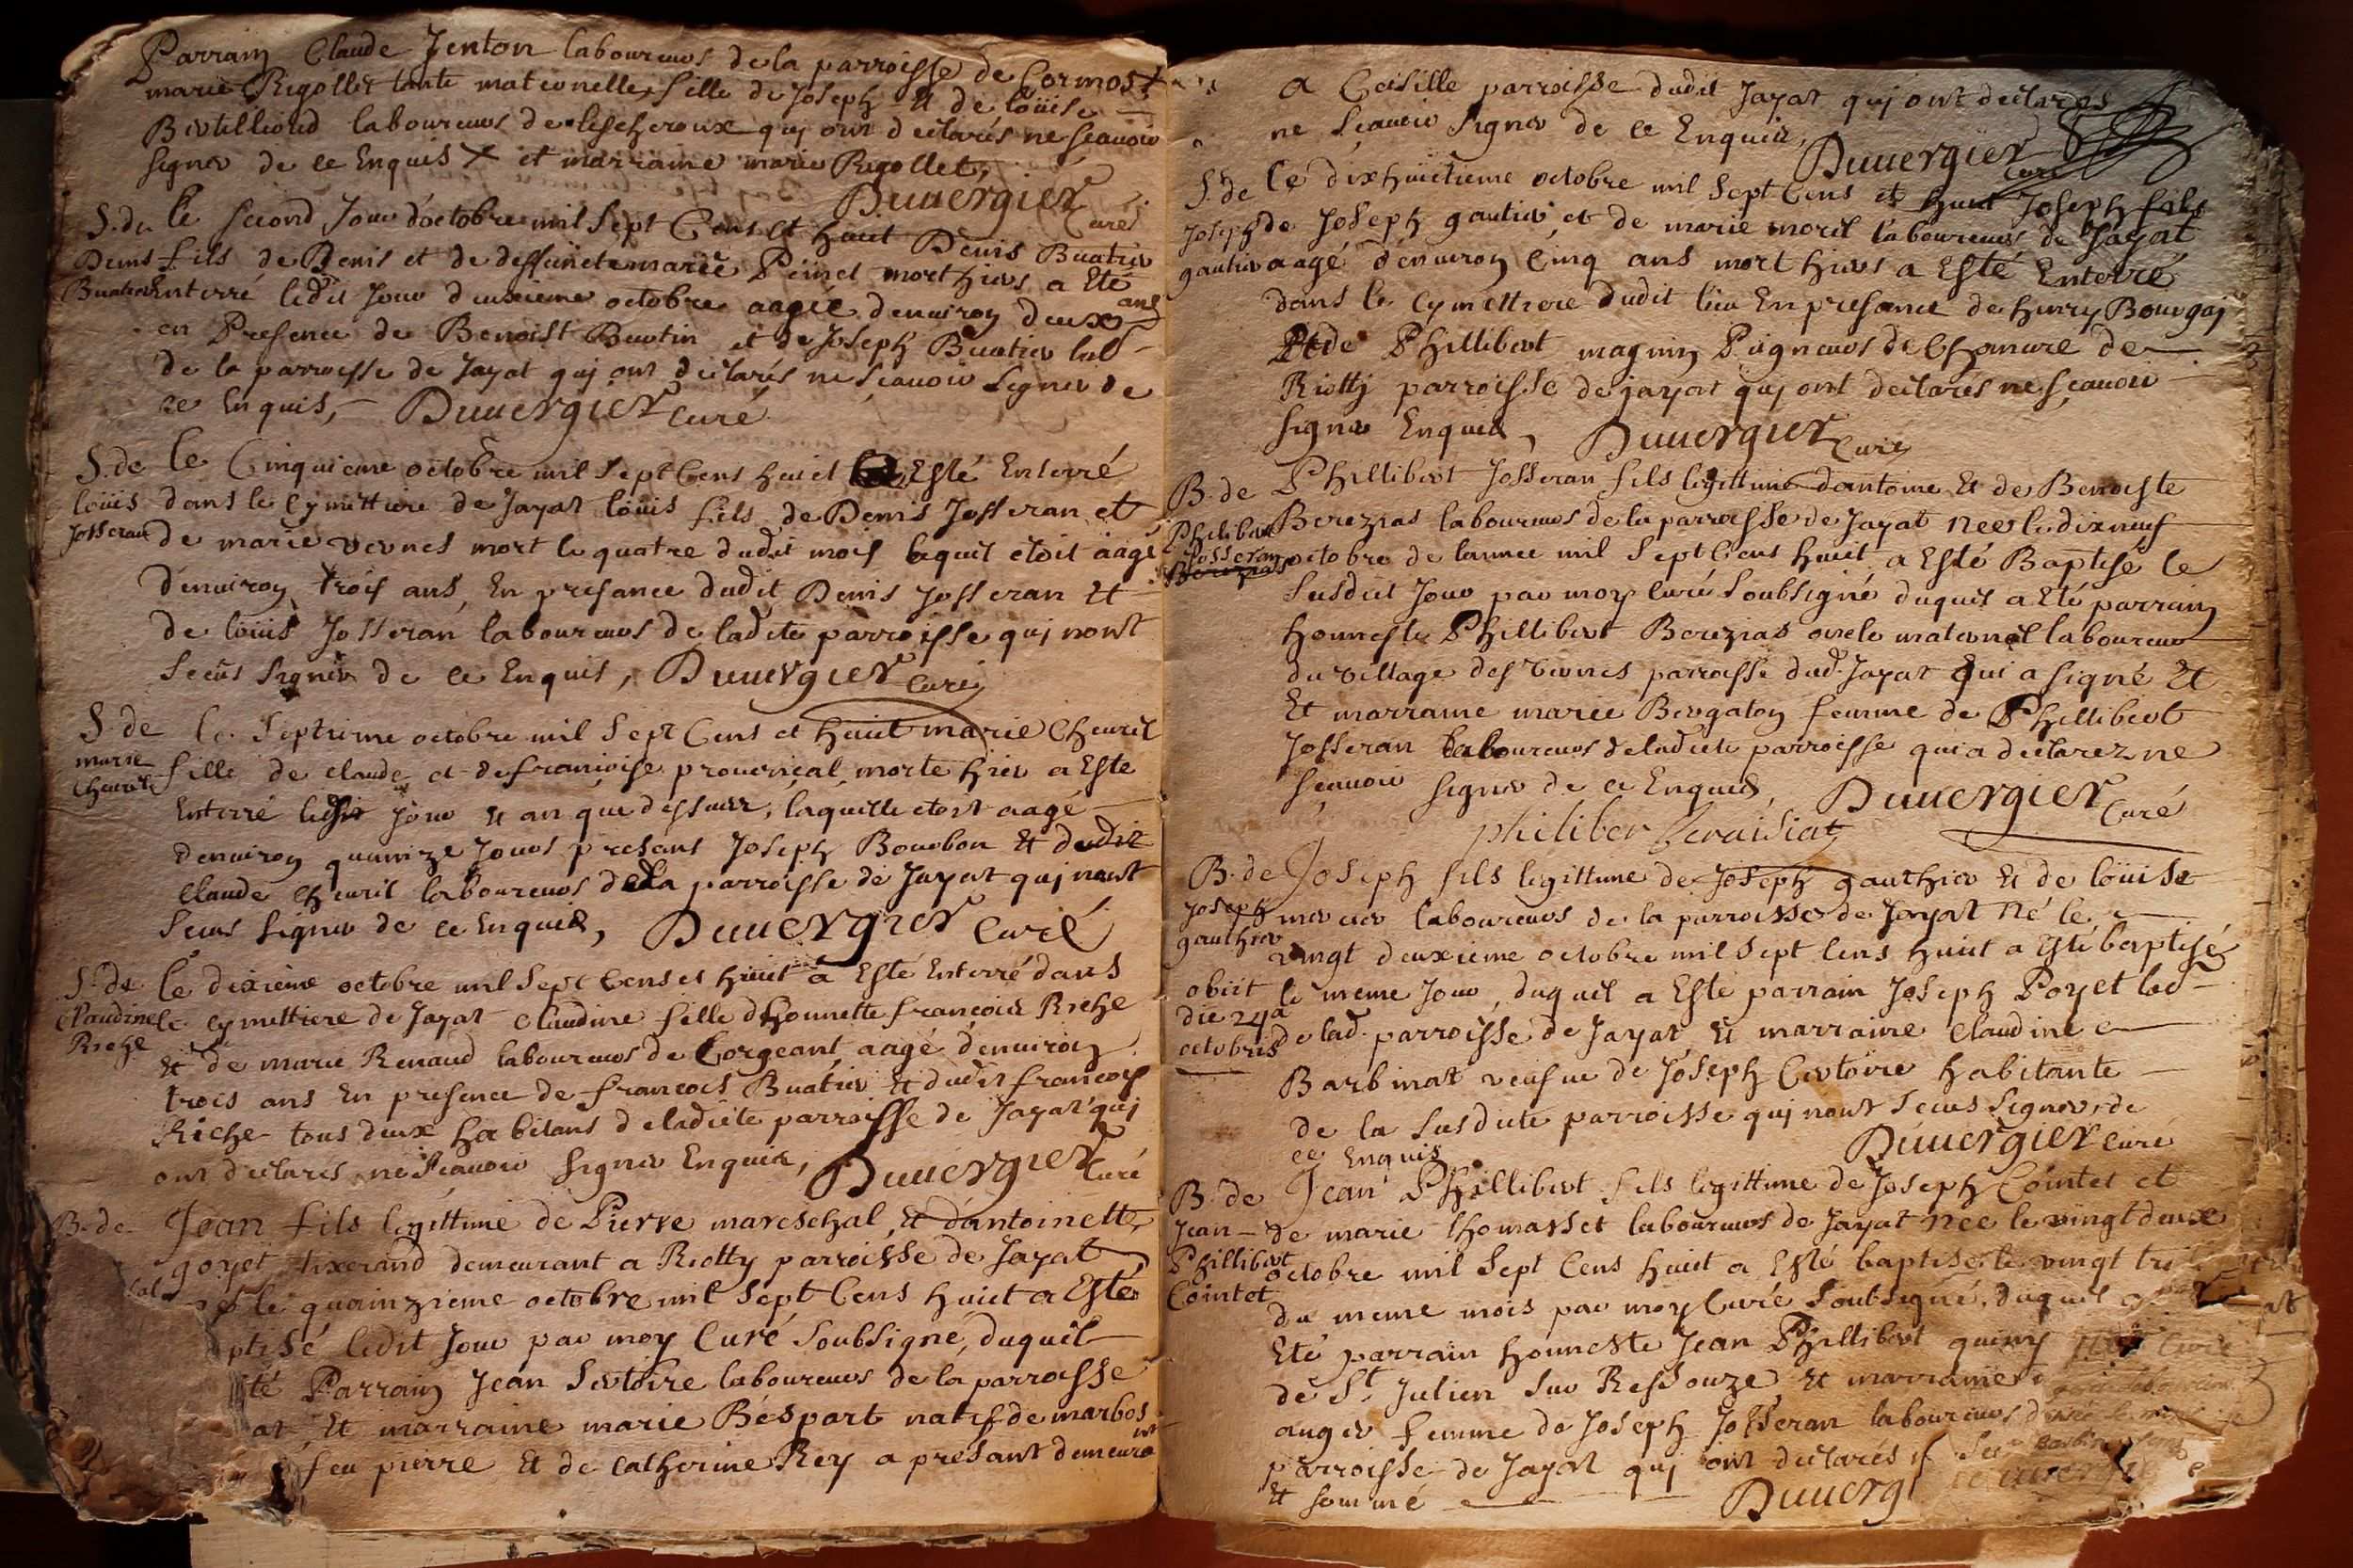 Parrain Claude Jenton laboureurs de la parroisse de Cormos X
marie Rigollet tante maternelle, fille de Joseph Et de loüise
laboureurs de lescheroux quj ont declarés ne scauoir
signer de ce Enquis X et marraine marie Rigollet,
Duuergier Curé
S. de le second Jour doctobre mil sept Cens et huit Denis Buatier
Denis fils de Denis et de deffuncte marie Pinet mort hiers a Eté
Buatier Enterré ledit Jour deuxieme octobre aagée denuiron deux ans
en Presence de Benoist Buatin et de Joseph Buatier lab
de la parroisse de Jayat quj ont declarés ne scauoir signer de
ce Enquis, Duuergier Curé
S. de le Cinquieme octobre mil sept Cens huict Esté Enterré
loüis dans le Cymettiere de Jayat loüis fils de Denis Josseran et
Josseran de marie vernes mort le quatre dudit mois lequel etoit aagé
denuiron trois ans, En presance dudit Denis Josseran Et
de loüis Josseran laboureurs de ladite parroisse quj nont
sceus signer de ce Enquis, Duuergier Curé
S. de le septieme octobre mil sept Cens et huit marie Cheuril
marie fille de claude et de francoise prouençal morte hier a Esté
Cheuril Enterré ledit Jour et an que dessus, laquelle etoit aagé
denuiron quinnze Jours presans Joseph Bourbon Et dudit
claude cheuril laboureurs de la parroisse de Jayat quj nont
sceus signer de ce Enquis, Duuergier Curé
S. de le dixieme octobre mil sept Cens et huit a Esté Enterré dans
Claudine le cymettiere de Jayat claudine fille dhonnette francois Riche
Riche Et de marie Renaud laboureurs de Corgeant aagé denuiron
trois ans En presence de francois Buatier Et dudit francois
Riche tous deux habitans de ladicte parroisse de Jayat quj
ont declarés ne scauoir signer Enquis, Duuergier Curé
B. de Jean fils legittime de Pierre mareschal, Et dantoinette
goyet tixerand demeurant a Riotty parroisse de Jayat
le quainzieme octobre mil sept Cens huict a Esté
ptisé ledit Jour par moy Curé soubsigné, duquel
té Parrain Jean Sertoire laboureurs de la parroisse
at, Et marraine marie Bésport natif de marbos
feu pierre Et de catherine Rey a presant demeurant
a Caisille parroisse dudit Jayat quj ont declarés
ne scauoir signer de ce Enquis, Duuergier Curé
S. de le dixhuictieme octobre mil sept Cens et huit Joseph fils
Joseph de Joseph gautier et de marie morel laboureurs de Jayat
gautier aagé denuiron Cinq ans mort hiers a Esté Enterré
dans le cymettiere dudit lieu En presance de henry Bourgaj
Et de Phillibert magnin Pigneurs de Chanure de
Riotty parroisse de jayat quj ont declarés ne scauoir
signer Enquis, Duuergier Curé
B. de Phillibert Josseran fils legittime dantoine Et de Benoiste
Philibert Berezias laboureurs de la parroisse de Jayat née le dixneuf
Josseran octobre de lannee mil sept Cens huit a Esté Baptisé le
Berezias
susdit Jour par moy Curé soubsigné duquel a Eté parrain
honneste Phillibert Berezias oncle maternel laboureur
du village des vernes parroisse dud. Jayat qui a signé Et
Et marraine marie Bergaton femme de Phillibert
Josseran laboureurs de ladicte parroisse qui a declarez ne
scauoir signer de ce Enquis, Duuergier Curé
philiber beraisiat
B. de Joseph fils legittime de Joseph gauthier Et de loüise
Joseph mercier laboureurs de la parroisse de Jayat né le
gauthier vingt deuxieme octobre mil sept Cens huict a Esté baptisé
obiit le meme Jour, duquel a Esté parrain Joseph Poyet lab
die 24a
octobris de lad. parroisse de Jayat Et marraine claudine
Barbinat veufue de Joseph Certoire habitante
de la susdicte parroisse quj nont sceus signer de
ce Enquis Duuergier Curé
B. de Jean Phillibert fils legittime de Joseph Cointet et
Jean de marie thomasset laboureurs de Jayat née le vingt deux
Phillibert octobre mil sept Cens huict a Esté baptisé le vingt
Cointet du meme mois par moy Curé soubsigné, duquel a
Eté parrain honneste Jean Phillibert
de St Julien sur Ressouze, Et marraine
auger femme de Joseph Josseran laboureurs
parroisse de Jayat quj ont declarés
Et sommé Duuerg